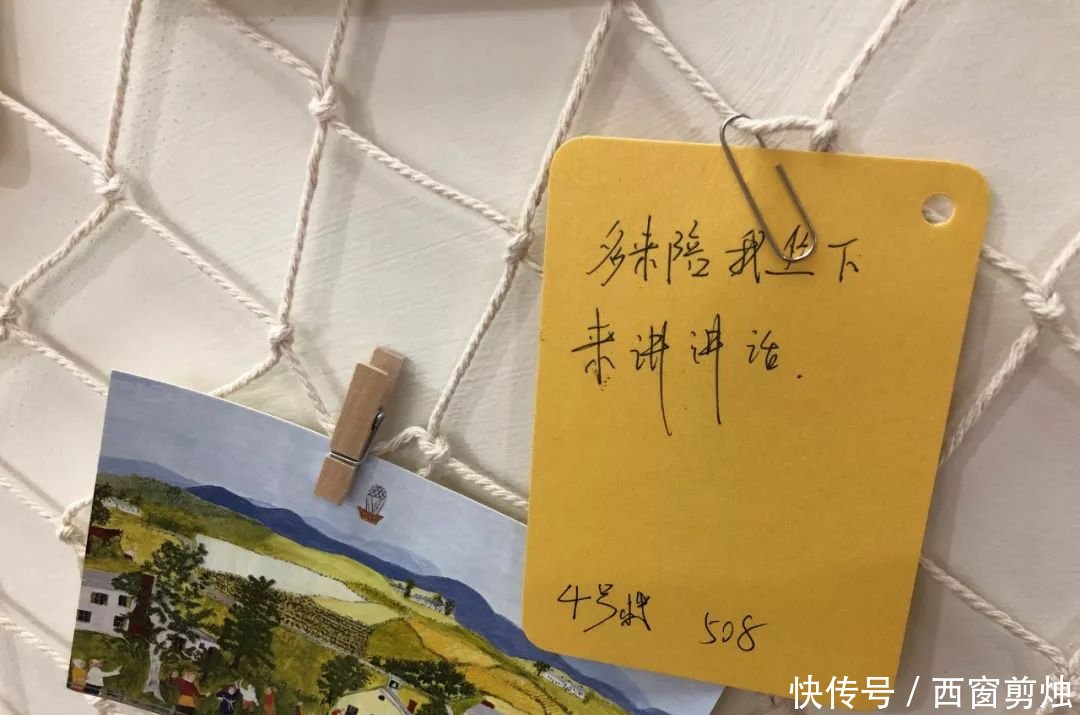 多来陪我坐下
来讲讲话.
4号楼 508
快传号 / 西窗剪烛